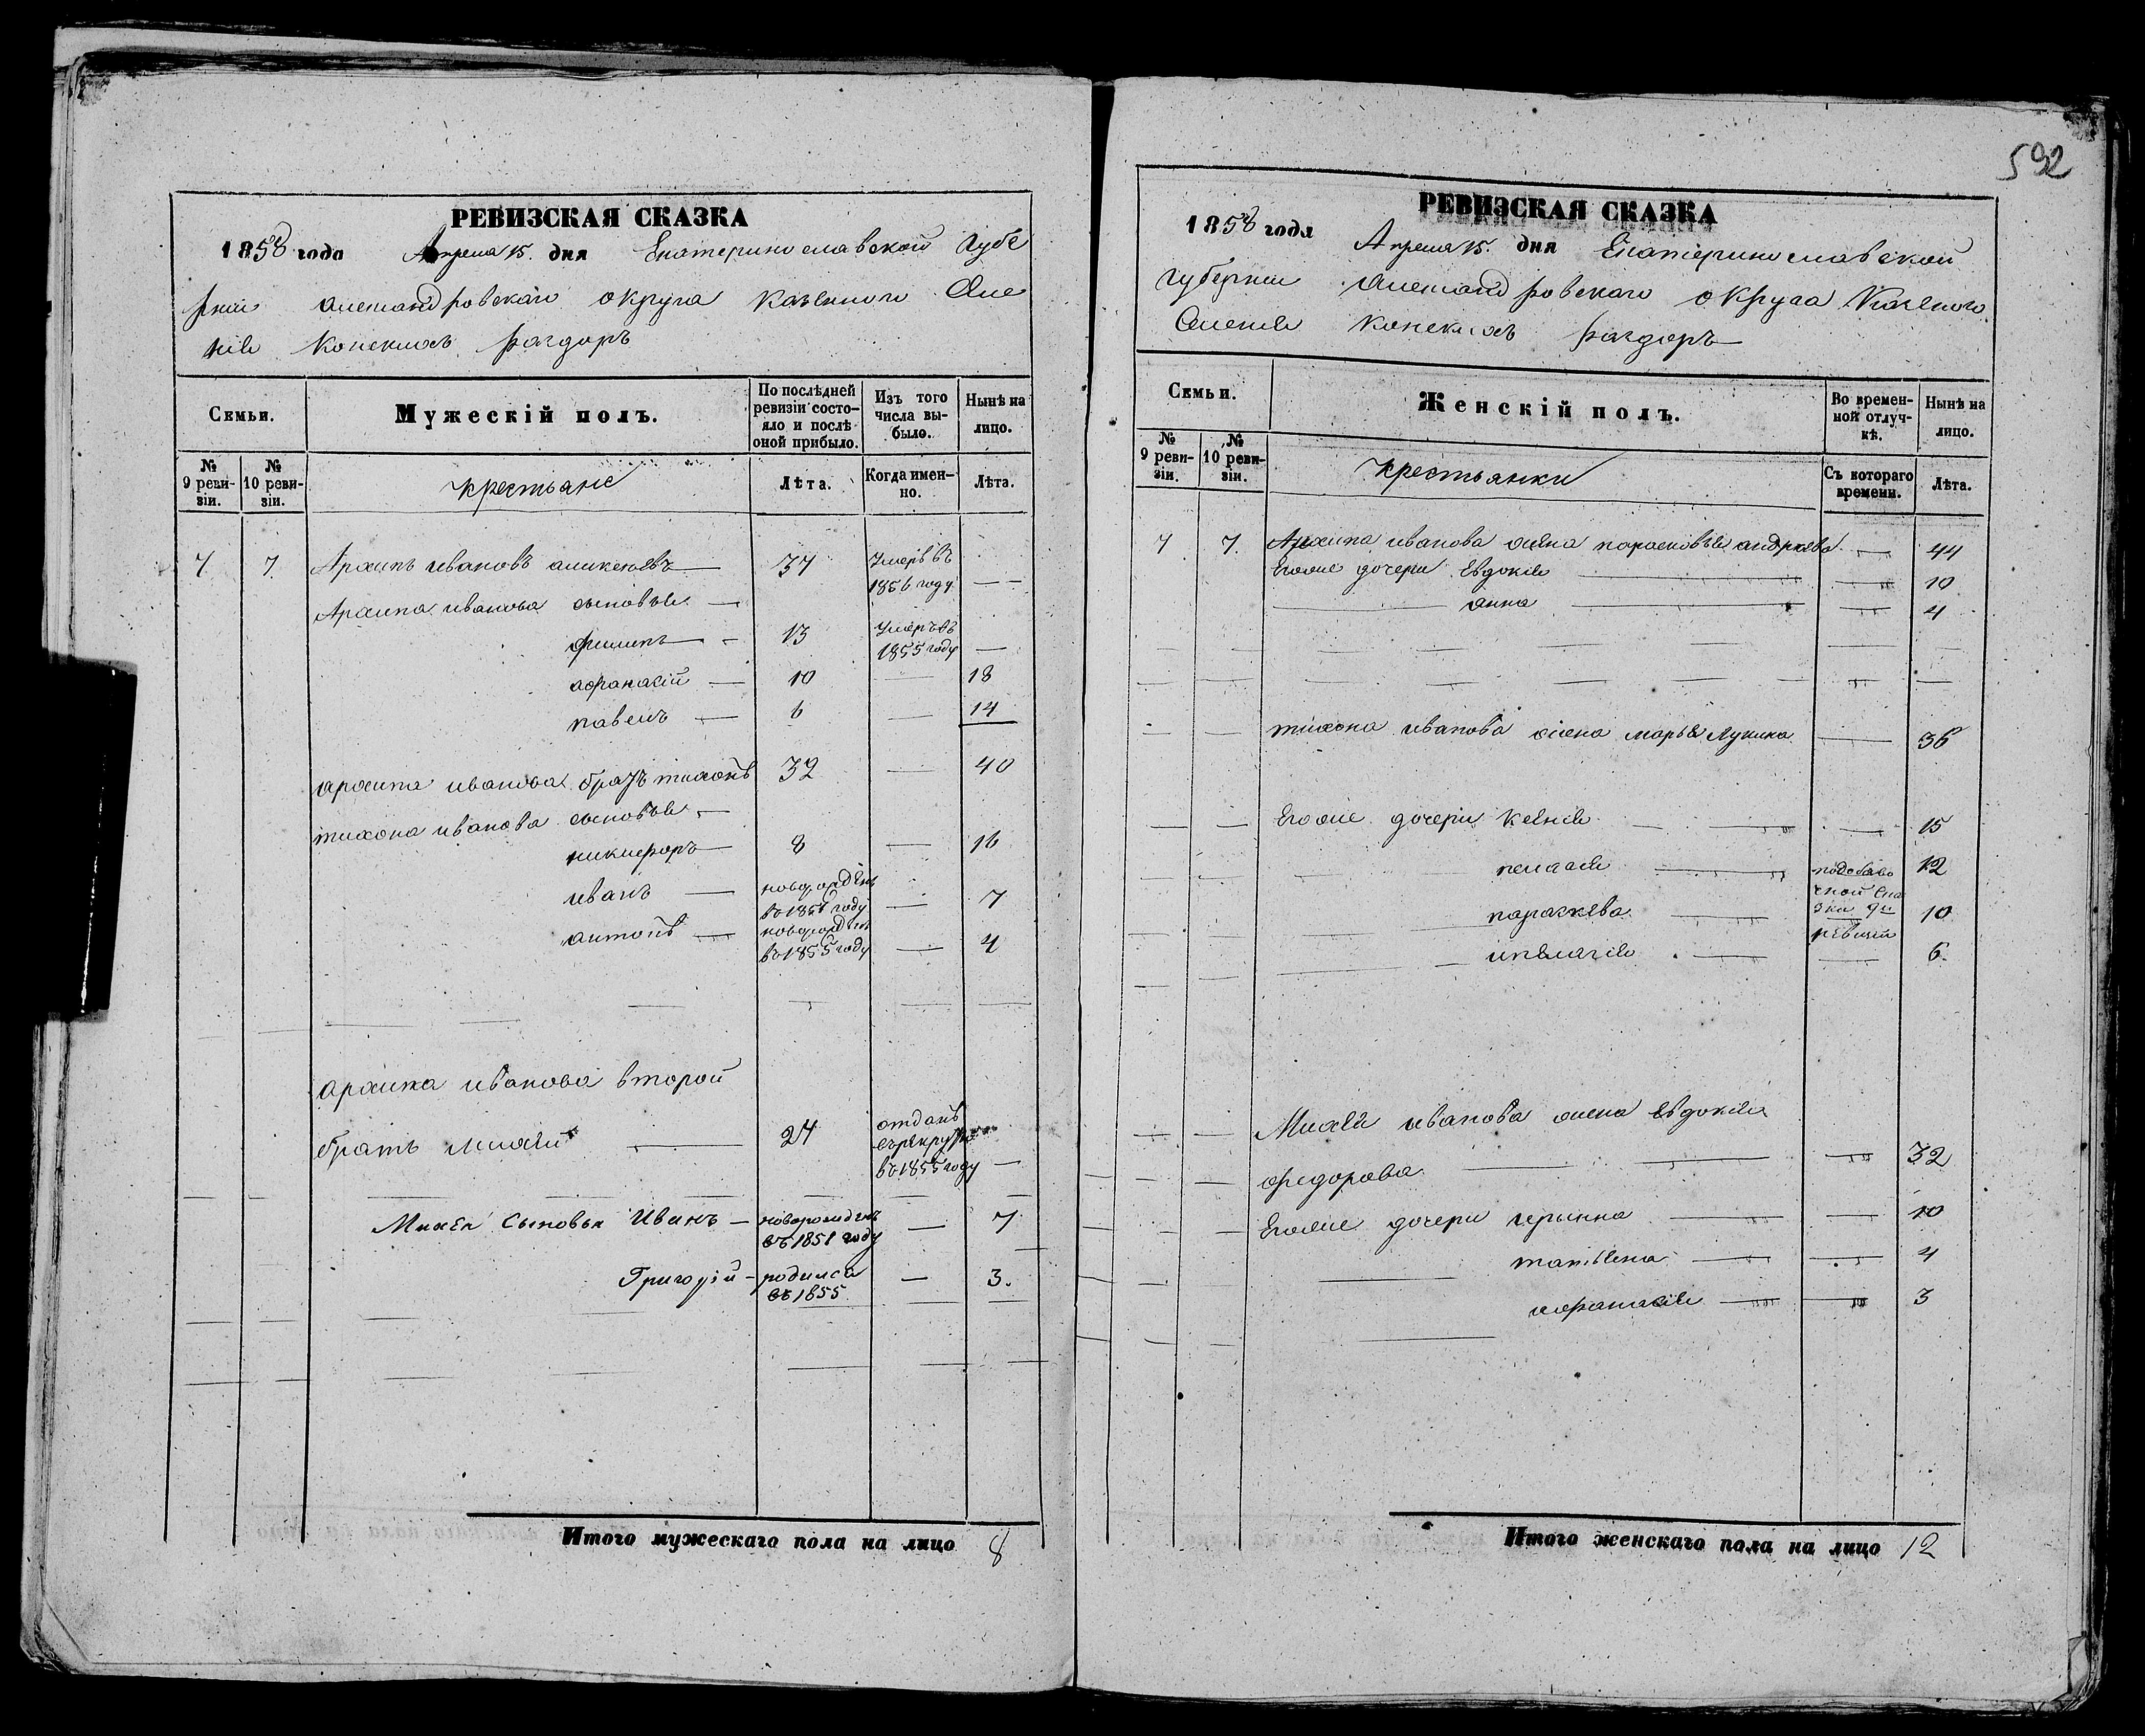 592
РЕВИЗСКАЯ СКАЗКА
1858 года Апреля 15. дня Екатеринославской Губе
рнии Александровскаго округа Казеннаго Селе
ния Конскихъ Раздоръ
Семьи.
Мужескій полъ.
По послѣдней ревизіи состояло и послѣ оной прибыло.
Изъ того числа выбыло.
Нынѣ на лицо.
№ 9 ревизіи.
№ 10 ревизіи.
Крестьяне
Лѣта.
Когда именно.
Лѣта.
7 7 Архипъ Ивановъ 37 Умеръ въ
1856 году — —
Архипа Иванова сыновья —
Филипъ — 13 Умеръ въ
1855 году —
Афанасій — 10 — 18
Павелъ — 6 — 14
Архипа Иванова братъ Тихонъ 32 — 40
Тихона Иванова сыновья —
Никифоръ — 8 — 16
Иванъ — новорожденъ
въ 1851 году — 7
Антонъ — новорожден
въ 1855 году — 4
Архипа Иванова второй
братъ Михей — 24 отданъ
въ рекруты
въ 1855 году —
Михея Сыновья Иванъ — новорожденъ
въ 1851 году — 7
Григорій — родился
въ 1855 — 3.
Итого мужескаго пола на лицо 8
РЕВИЗСКАЯ СКАЗКА
1858 года Апреля 15. дня Екатеринославской
Губернии Александровскаго округа Казенного
Селения Конскихъ Раздоръ
Семьи.
Женскій полъ.
Во временной отлучкѣ.
Нынѣ на лицо.
№ 9 ревизіи.
№ 10 ревизіи.
Крестьянки
Съ котораго времени.
Лѣта.
7 7. Архипа Иванова жена Парасковья Андреева — 44
Еговые дочери Евдокия — 10
Анна — 4
Тихона Иванова жена Марья Лукина — 36
Еговые дочери Ксения — 15
Пелагея — 12
Параскева — 10
— 6.
Михея Иванова жена Евдокия
Федорова — 32
Еговые дочери — 10
Татияна — 4
Афанасия — 3
Итого женскаго пола на лицо 12